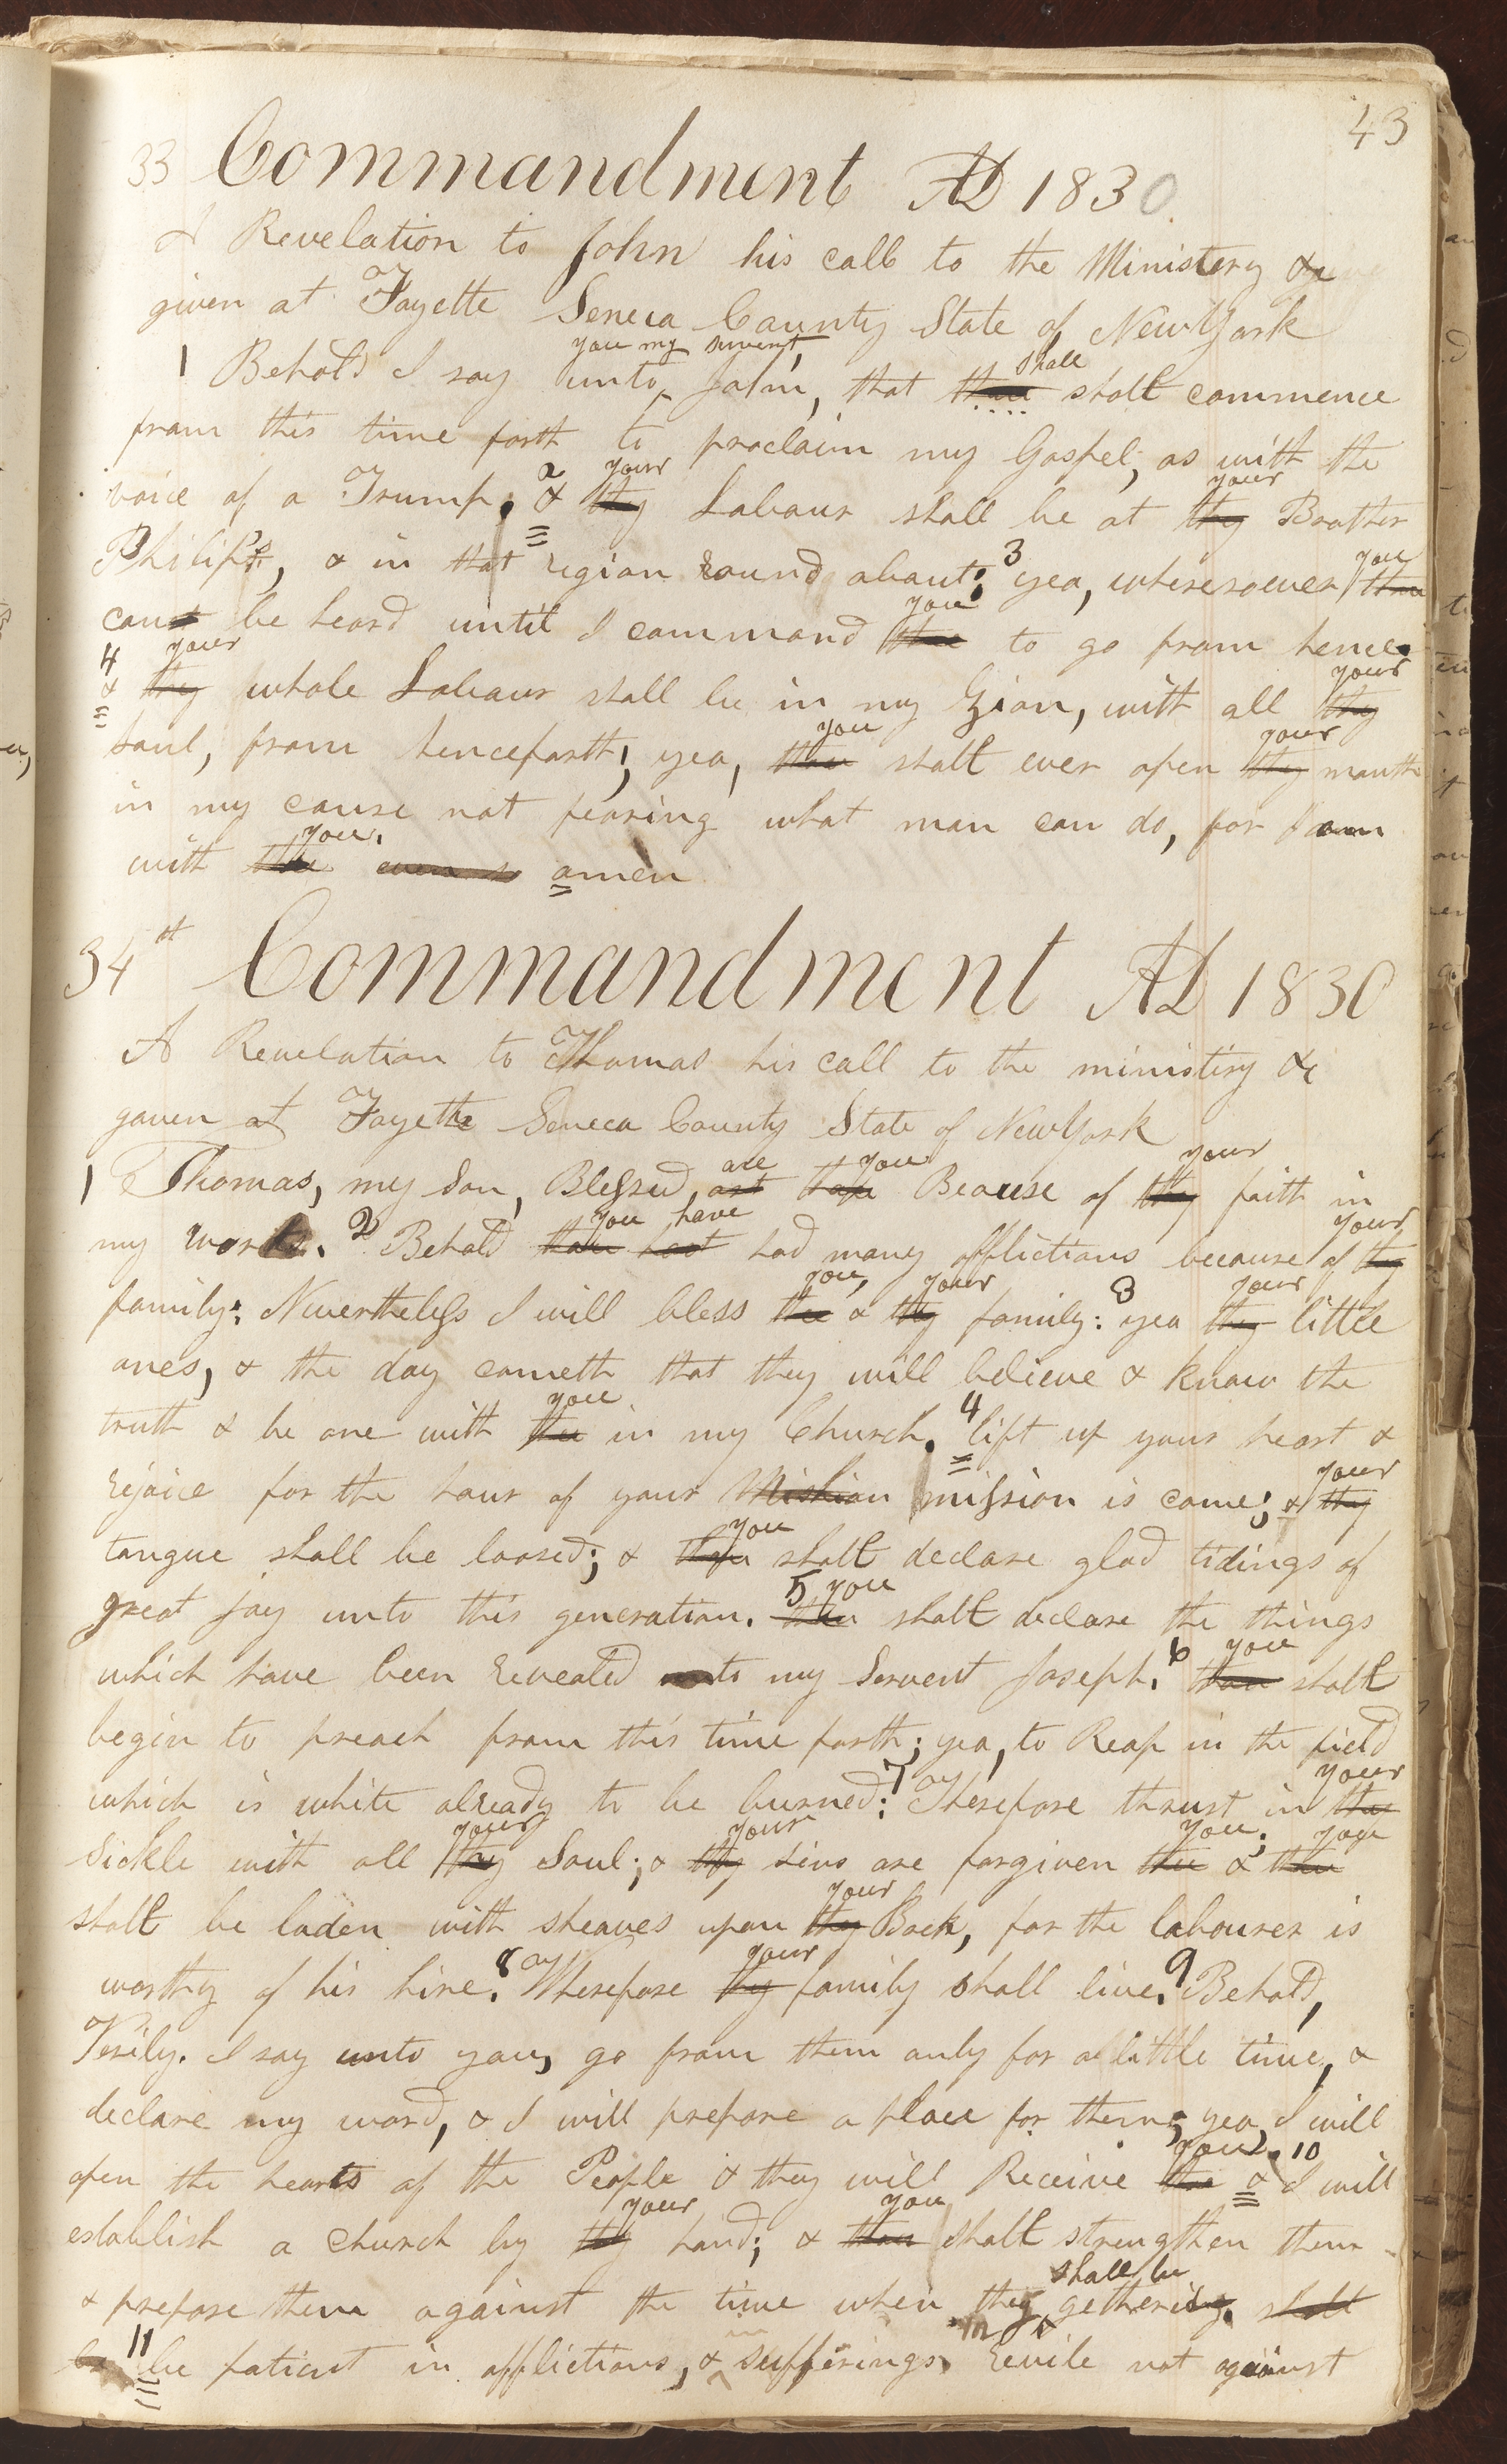 43
33 Commandment AD 1830
A Revelation to John his call to the Ministery &c
given at Fayette Seneca County State of New York
you my servent,
1 Behold I say unto John, that thou shall shalt commence
from this time forth to proclaim my Gospel, as with the
voice of a Trump. 2 & thy your Labour shall be at thy your Brother
Philip's, & in that region round about; 3 yea, wheresoever thou you
canst be heard until I command thee you to go from hence.
4 & thy your whole Labour shall be in my Zion, with all thy your
soul, from henceforth; yea, thou you shalt ever open thy your mouth
in my cause not fearing what man can do, for I am
with thee you. even so amen
34th Commandment AD 1830
A Revelation to Thomas his call to the ministery &c
gaven at Fayette Seneca County State of New York
1 Thomas, my Son, Blessed, art are thou you Beause of thy your faith in
my works. 2 Behold thou hast you have had many afflictions because of thy your
family: Nevertheless I will bless thee you, & thy your family: 3 yea thy your little
ones, & the day cometh that they will believe & know the
truth & be one with thee you in my Church. 4 lift up your heart &
rejoice for the hour of your Mishion mission is come; & thy your
tongue shall be loosed; & thou you shalt declare glad tidings of
great joy unto this generation. 5 thou you shalt declare the things
which have been revealed unto my Servent Joseph. 6 thou you shalt
begin to preach from this time forth; yea, to Reap in the field
which is white already to be burned: 7 Therefore thrust in thy your
Sickle with all thy your Soul; & thy your sins are forgiven thee you; & thou you
shalt be laden with sheaves upon thy your Back, for the labourer is
worthy of his hire. 8 Wherefore thy your family shall live. 9 Behold,
Verily. I say unto you, go from them only for a little time, &
declare my word, & I will prepare a place for them; yea, I will
open the hearts of the People & they will Receive thee you. 10 & I will
establish a church by thy your hand; & thou you shalt strengthen them
& prepare them against the time when they shall be gethering. shall
be 11 be patient in afflictions, & in sufferings, revile not against